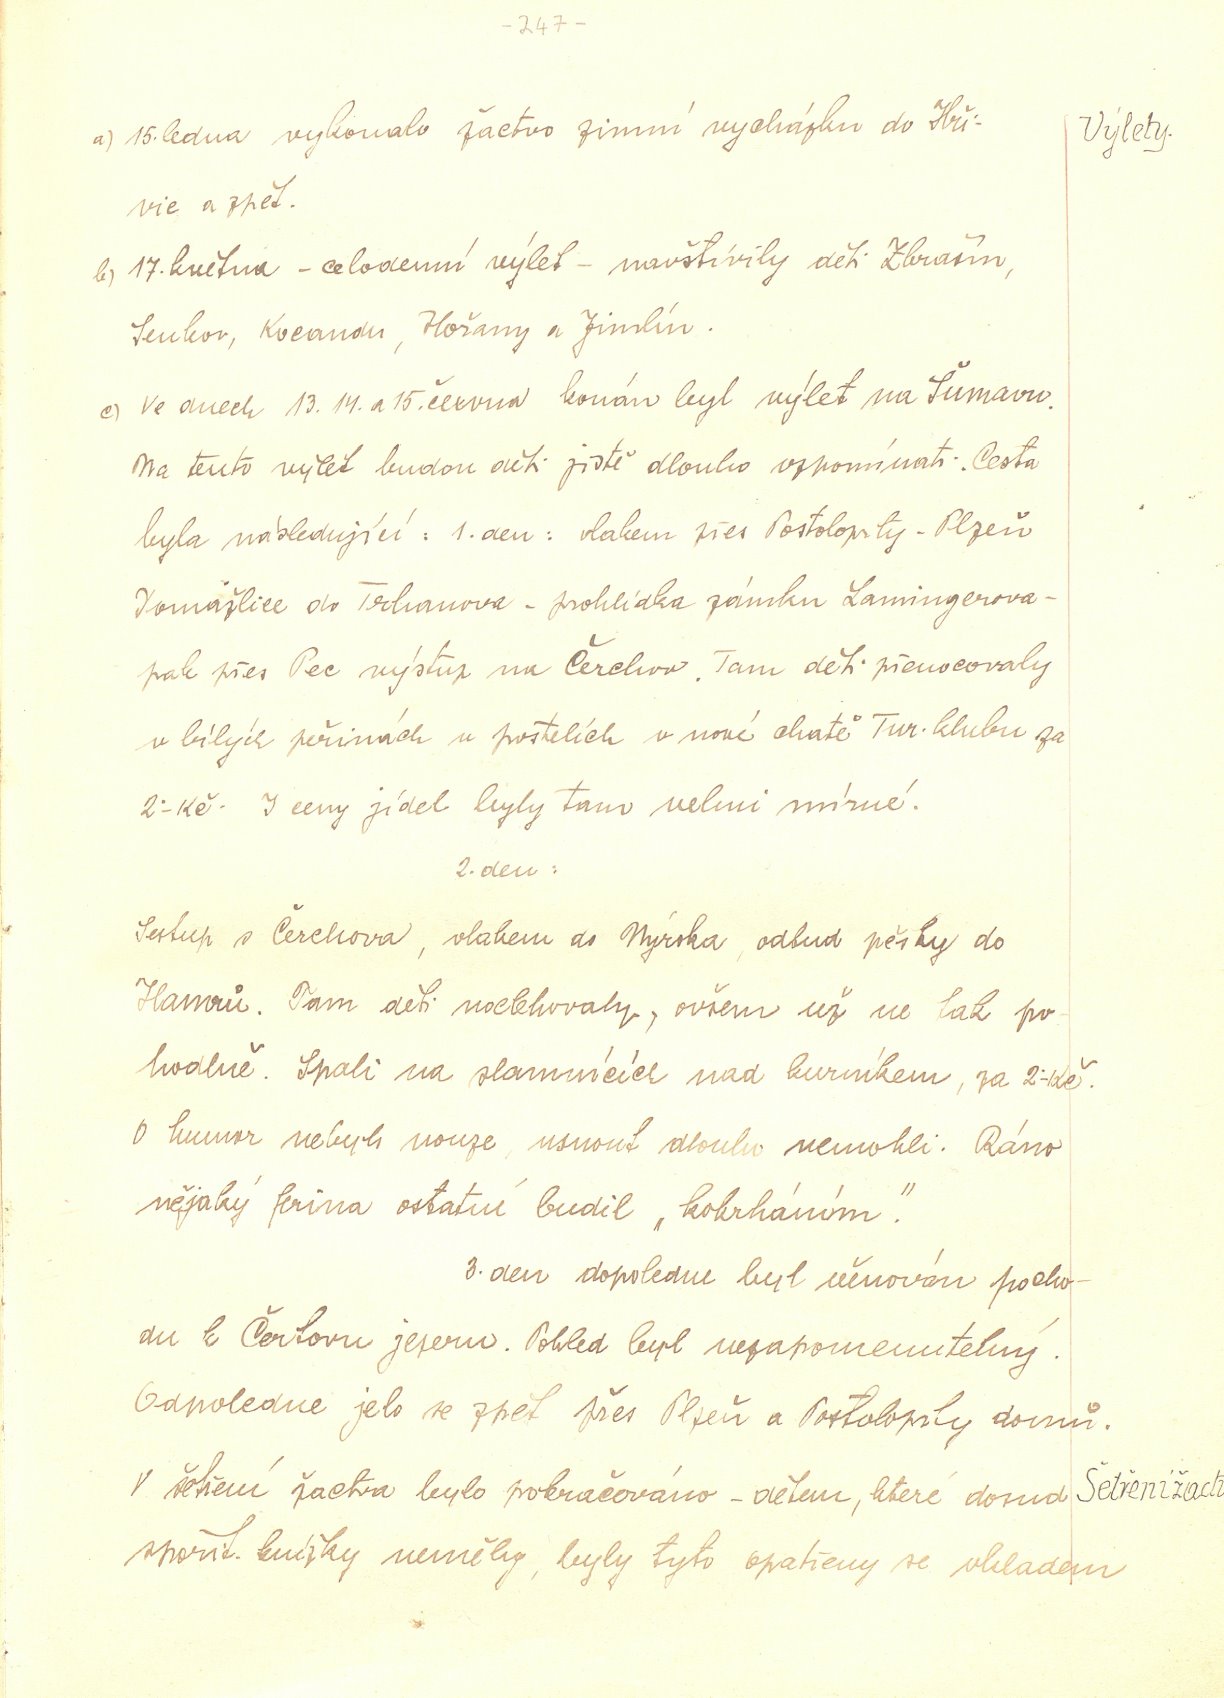 -247-
a) 15. ledna vykonalo žactvo zimní vycházku do Hři-
Výlety.
vic a zpět.
b) 17. května - celodenní výlet - navštívily děti Zbrašín,
Senkov, Kocandu, Hořany a Zimlín.
c) Ve dnech 13. 14. a 15. června konán byl výlet na Šumavu.
Na tento výlet budou děti jistě dlouho vzpomínati. Cesta
byla následující: 1. den: vlakem přes Postoloprty - Plzeň
Domažlice do Trhanova - prohlídka zámku Lamingerova -
pak přes Pec výstup na Čerchov. Tam děti přenocovaly
v bílých peřinách v postelích v nové chatě Tur. klubu za
2·- Kč. I ceny jídel byly tam velmi mírné.
2. den:
Sestup s Čerchova, vlakem do Nýrska, odtud pěšky do
Hamrů. Tam děti noclehovaly, ovšem už ne tak po-
hodlně. Spali na slamnících nad kurníkem, za 2·- Kč.
O humor nebylo nouze, usnout dlouho nemohli. Ráno
nějaký ferina ostatní budil „kokrháním".
3. den dopoledne byl věnován pocho-
du k Čertovu jezeru. Pohled byl nezapomenutelný.
Odpoledne jelo se zpět přes Plzeň a Postoloprty domů.
V šetření žactva bylo pokračováno - dětem, které dosud
Šetření žact
spořit. knížky neměly, byly tyto opatřeny se vkladem